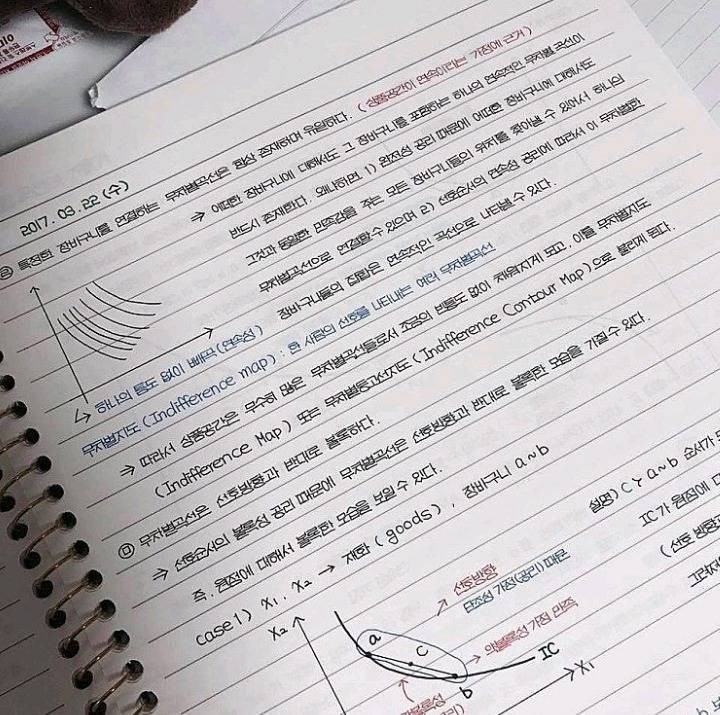 2017. 03. 22 (수)
㉠ 특정한 장바구니를 연결하는 무차별곡선은 항상 존재하며 유일하다. (상품공간이 연속이라는 가정에 근거)
→ 어떠한 장바구니에 대해서도 그 장바구니를 포함하는 하나의 연속적인 무차별 곡선이
반드시 존재한다. 왜냐하면 1) 완전성 공리 때문에 어떠한 장바구니에 대해서도
그것과 동일한 만족감을 주는 모든 장바구니들의 위치를 찾아낼 수 있어서 하나의
무차별곡선으로 연결할 수 있으며 2) 선호순서의 연속성 공리에 따라서 이 무차별한
장바구니들의 집합은 연속적인 곡선으로 나타낼 수 있다.
↳ 하나의 틈도 없이 빼곡 (연속성)
무차별지도 (Indifference map) : 한 사람의 선호를 나타내는 여러 무차별곡선
→ 따라서 상품공간은 무수히 많은 무차별곡선들로서 조금의 빈틈도 없이 채워지게 되고, 이를 무차별지도
(Indifference Map) 또는 무차별등고선지도 (Indifference Contour Map) 으로 불리게 된다.
㉡ 무차별곡선은 선호방향과 반대로 볼록하다.
→ 선호순서의 볼록성 공리 때문에 무차별곡선은 선호방향과 반대로 볼록한 모습을 가질 수 있다.
즉, 원점에 대해서 볼록한 모습을 보일 수 있다.
case 1) X₁, X₂ → 재화 (goods), 장바구니 a~b
설명) C≻a~b 순서가
IC가 원점에
(선호 방향
X₂
선호방향
단조성 가정(공리) 때문
a
c
b
→ 약볼록성 가정 만족
IC
X₁